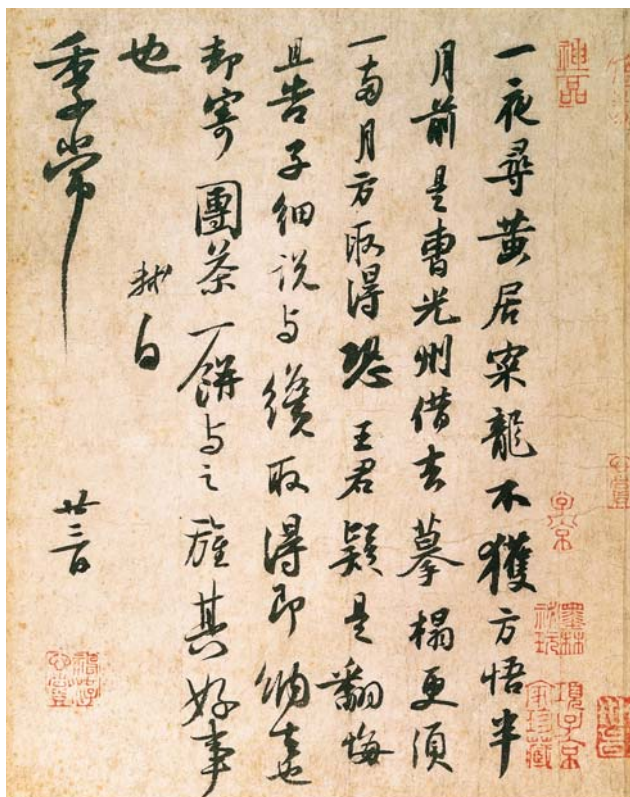 神品
子京
墨林祕玩
項子京家珍藏
一夜尋黃居寀龍不獲方悟半
月前是曹光州借去摹搨更須
一兩月方取得恐王君疑是翻悔
且告子細說與纔取得即納去也
却寄團茶一餅與之旌其好事
也
軾白
季常
廿三日